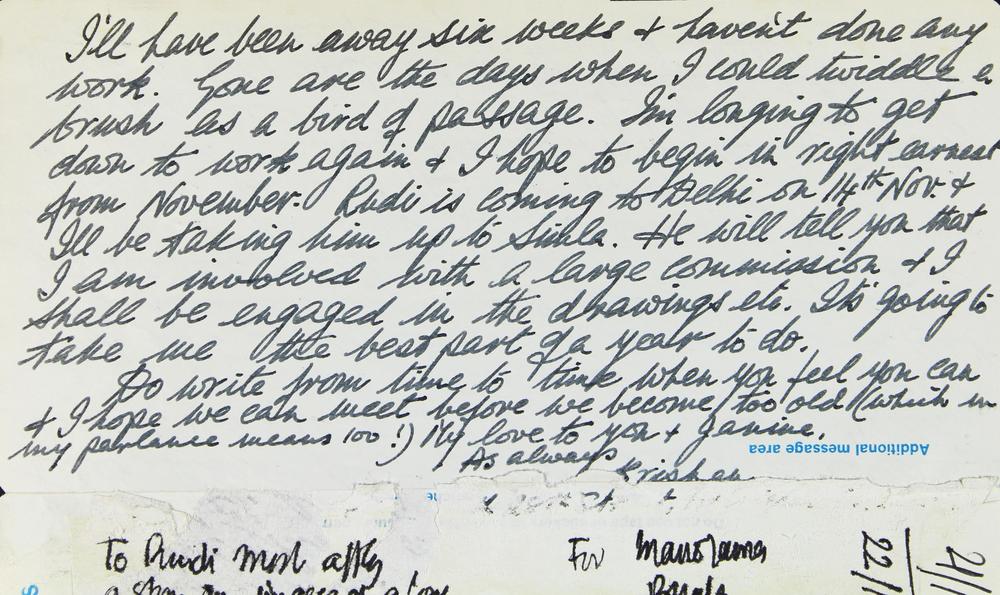 I'll have been away six weeks & haven't done any
work. Gone are the days when I could twiddle a
brush as a bird of passage. I'm longing to get
down to work again & I hope to begin in right earnest
from November. Rudi is coming to Delhi on 14th Nov. &
I'll be taking him up to Simla. He will tell you that
I am involved with a large commission & I
shall be engaged in the drawings etc. It's going to
take me the best part of a year to do.
Do write from time to time when you feel you can
& I hope we can meet before we become too old (which in
my parlance means 100!) My love to you & Janine.
As always
Krishan
Additional message area
To Rudi most affly
For Manorama
21/1
22/1